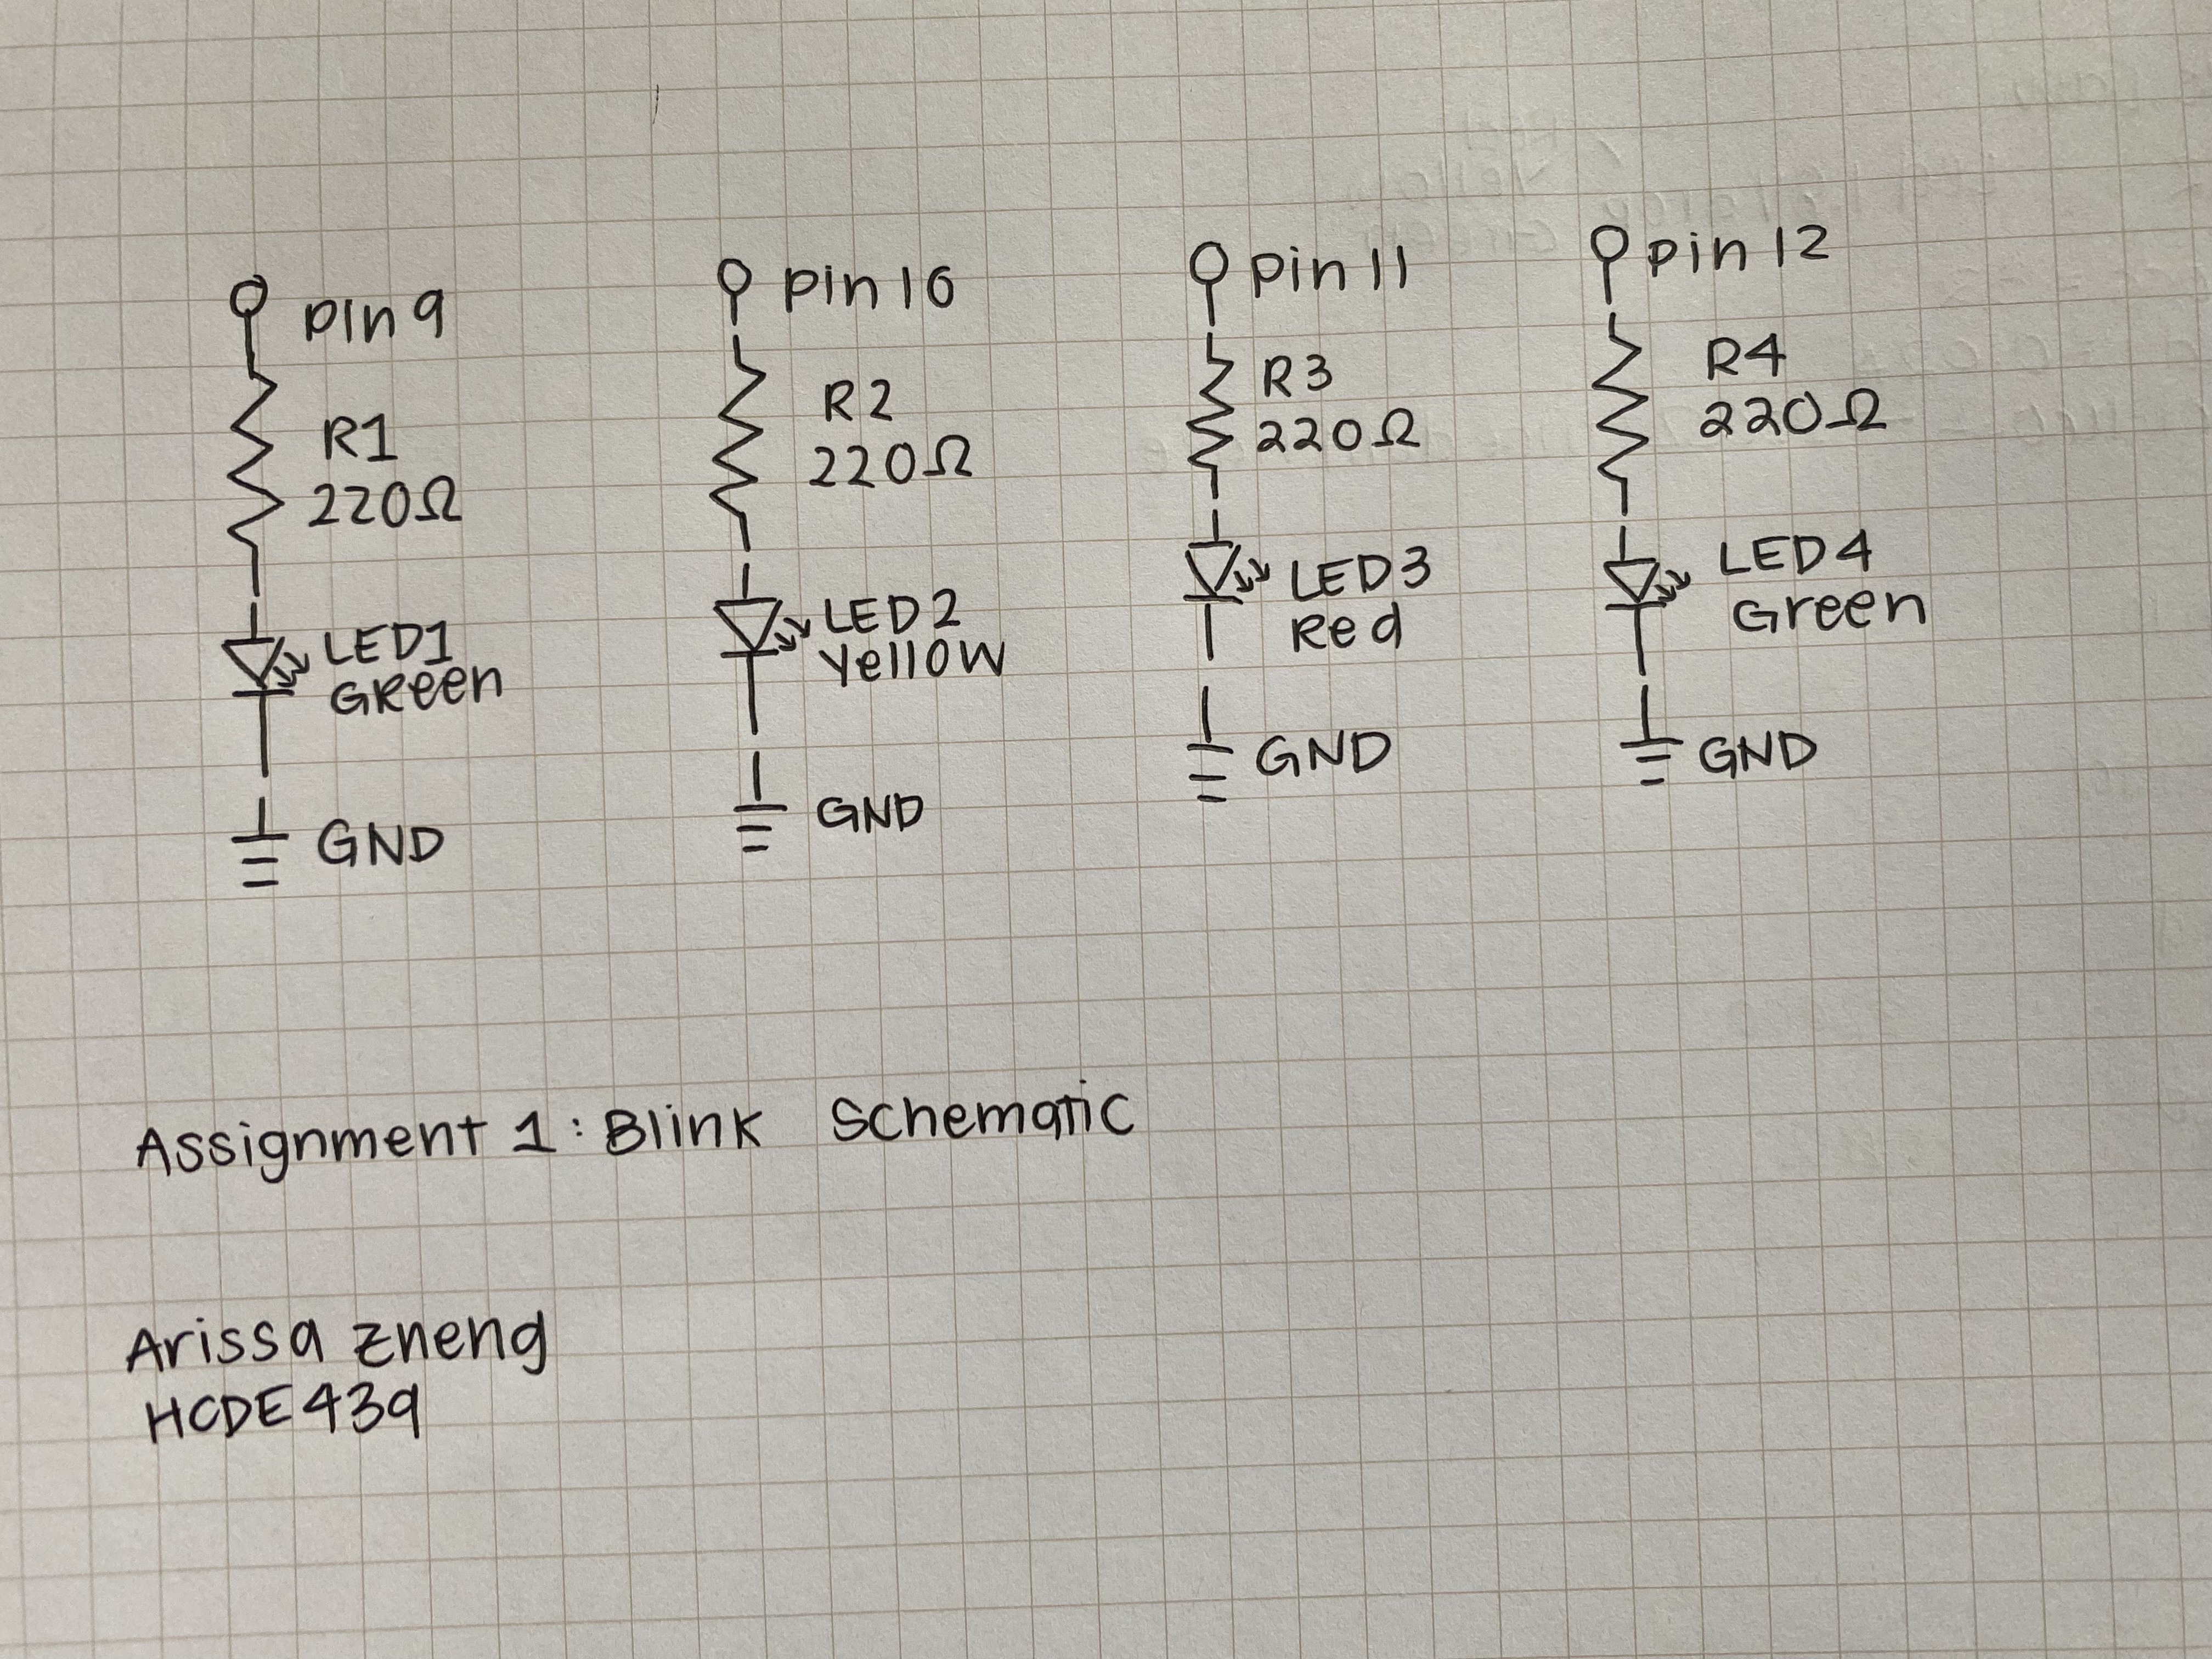 pin 9
R1
220Ω
LED1
Green
GND
pin 10
R2
220Ω
LED2
Yellow
GND
pin 11
R3
220Ω
LED3
Red
GND
pin 12
R4
220Ω
LED4
Green
GND
Assignment 1: Blink Schematic
Arissa Zheng
HCDE439